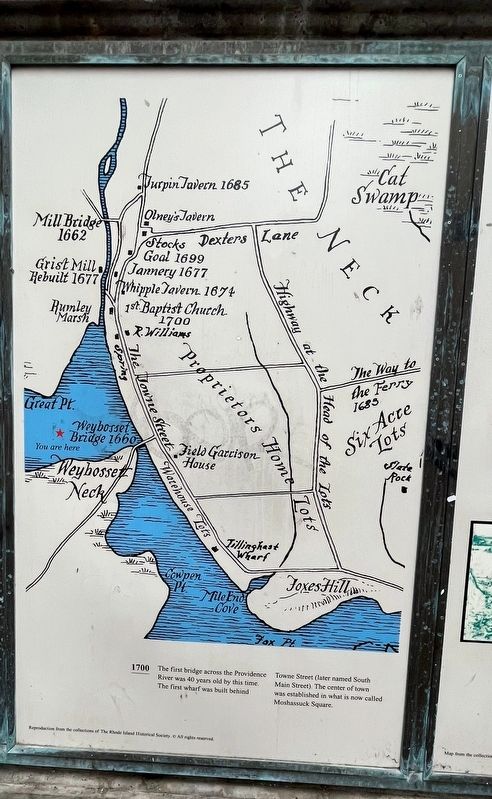 THE NECK
Cat
Swamp
Turpin Tavern 1685
Olney's Tavern
Mill Bridge
1662
Stocks
Goal 1699
Dexters Lane
Grist Mill
Rebuilt 1677
Tannery 1677
Whipple Tavern 1674
Rumley
Marsh
1st. Baptist Church
1700
R. Williams
Spring
Highway at the Head of the Lots
The Way to
the Ferry
1685
Six Acre
Lots
Slate
Rock
Proprietors Home Lots
The Towne Street
Warehouse Lots
Great Pt.
Weybosset
Bridge 1660
You are here
Weybosset
Neck
Field Garrison
House
Tillinghast
Wharf
Cowpen
Pt.
Mile End
Cove
Foxes Hill
Fox Pt.
1700
The first bridge across the Providence
River was 40 years old by this time.
The first wharf was built behind
Towne Street (later named South
Main Street). The center of town
was established in what is now called
Moshassuck Square.
Reproduction from the collections of The Rhode Island Historical Society. © All rights reserved.
Map from the collection